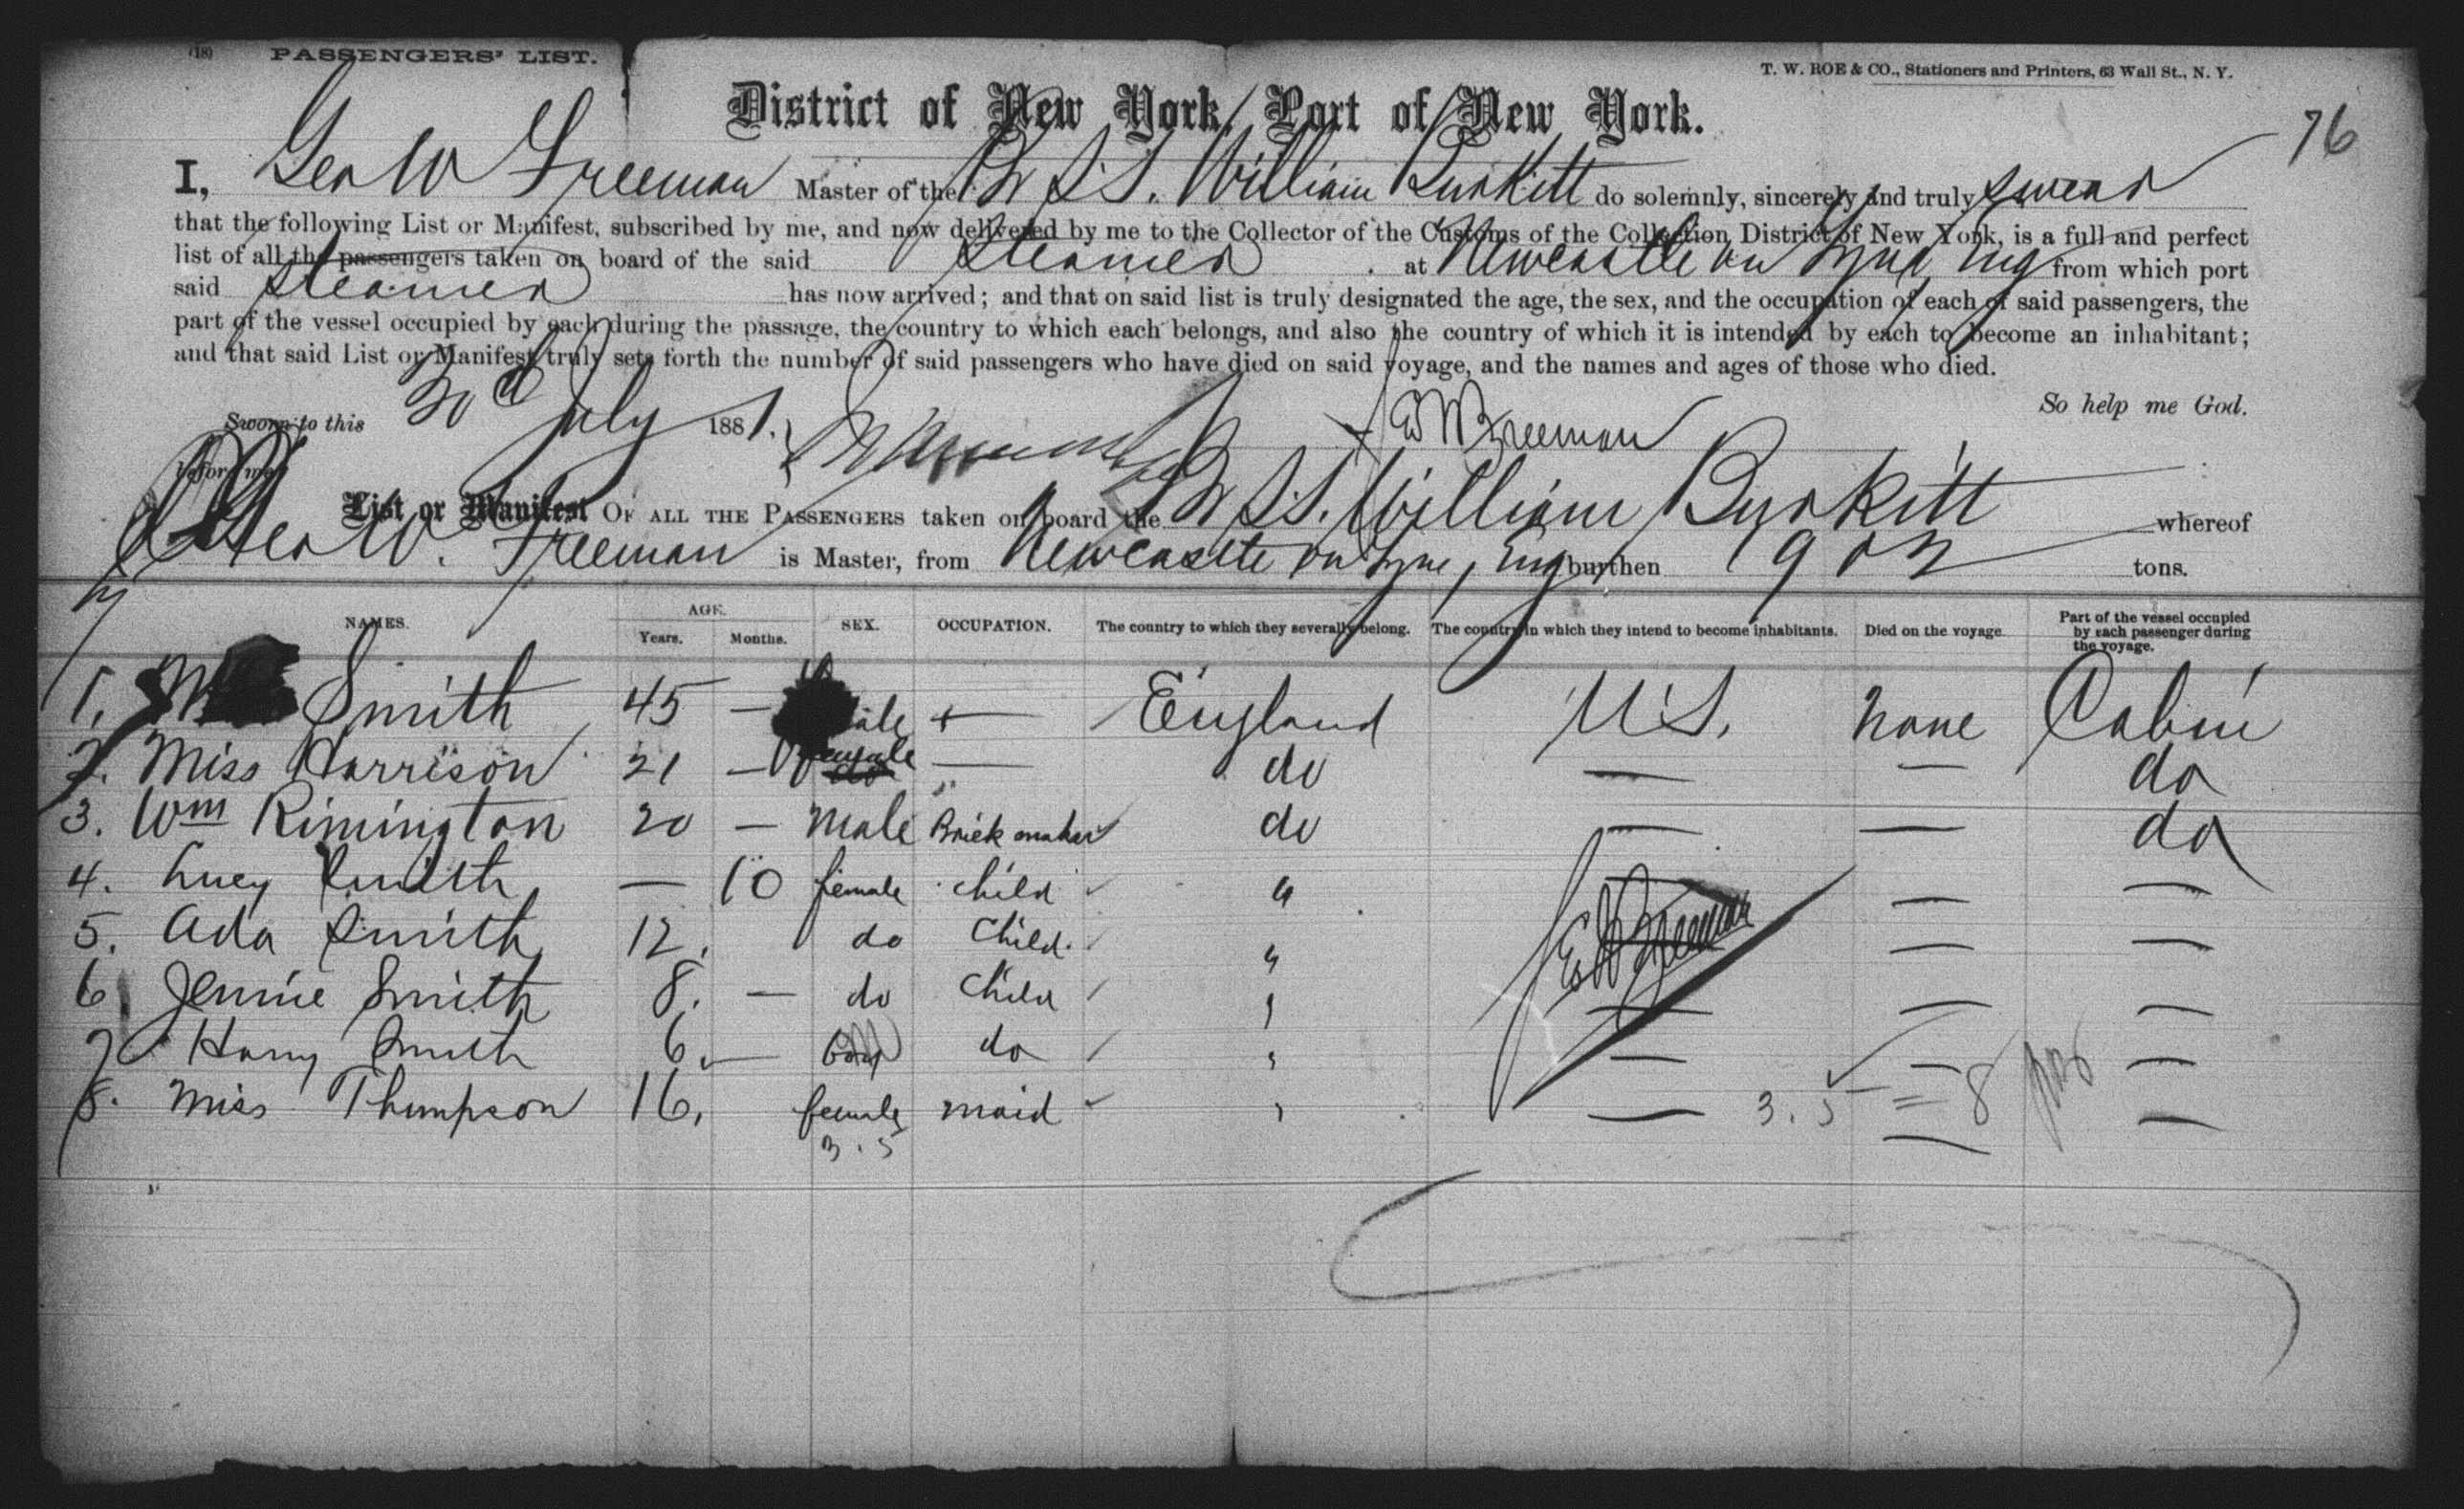 (18) PASSENGERS' LIST.
T. W. ROE & CO., Stationers and Printers, 63 Wall St., N. Y.
District of New York, Port of New York.
76
I, Geo W Freeman Master of the Br S.S. William Burkitt do solemnly, sincerely and truly swear
that the following List or Manifest, subscribed by me, and now delivered by me to the Collector of the Customs of the Collection District of New York, is a full and perfect
list of all the passengers taken on board of the said steamer at Newcastle on Tyne, Eng from which port
said steamer has now arrived; and that on said list is truly designated the age, the sex, and the occupation of each of said passengers, the
part of the vessel occupied by each during the passage, the country to which each belongs, and also the country of which it is intended by each to become an inhabitant;
and that said List or Manifest truly sets forth the number of said passengers who have died on said voyage, and the names and ages of those who died.
So help me God.
Sworn to this July 1881.
Freeman
before me
List or Manifest OF ALL THE PASSENGERS taken on board the Br S.S. William Burkitt whereof
Geo W. Freeman is Master, from Newcastle on Tyne, Eng burthen tons.
NAMES. AGE. Years. Months. SEX. OCCUPATION. The country to which they severally belong. The country in which they intend to become inhabitants. Died on the voyage. Part of the vessel occupied by each passenger during the voyage.
1. Smith 45 — — England U.S. none Cabin
2. Miss Harrison 21 — female — do — — do
3. Wm Rimington 20 — Male Brick maker do — — do
4. Lucy Smith — 10 female child " — — —
5. Ada Smith 12. do child " — —
6 Jennie Smith 8. — do child " — — —
7 Harry Smith 6. — boy do " — — —
8. Miss Thompson 16. female maid " — 3.5 = 8 —
3.5
Freeman